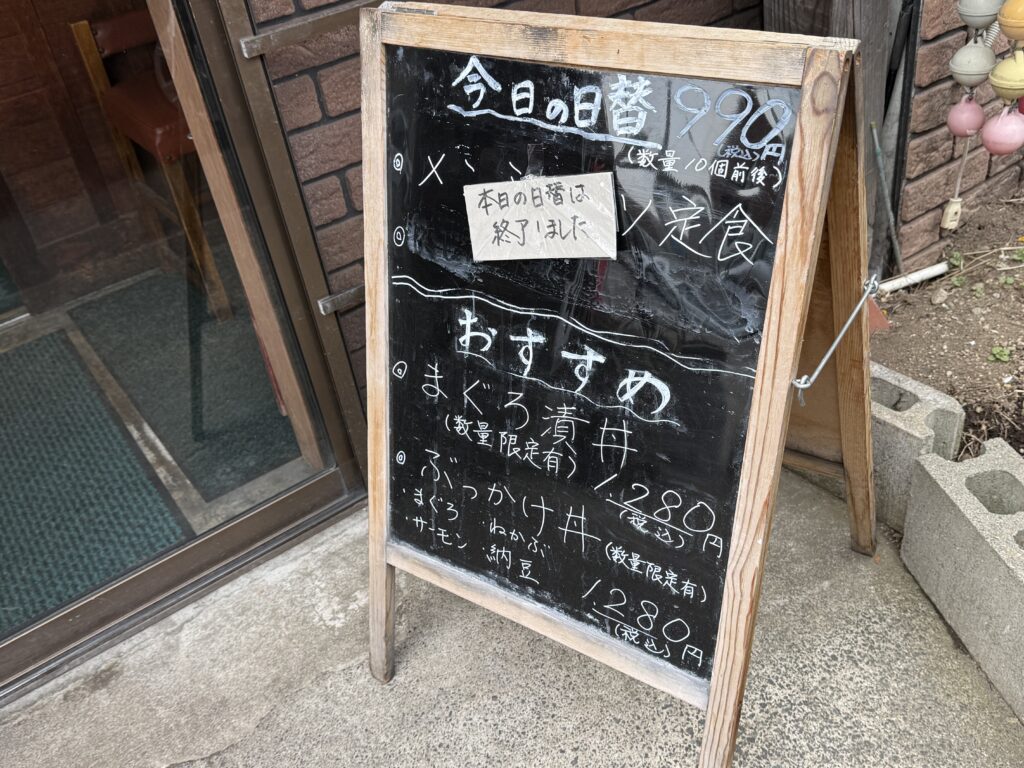 今日の日替 990円
(税込)
(数量10個前後)
◎ メン
本日の日替は
終了しました
ソ定食
◎
おすすめ
◎ まぐろ漬丼
(数量限定有)
1,280円
(税込)
◎ ぶっかけ丼
(数量限定有)
・まぐろ ねかぶ
・サーモン 納豆
1,280円
(税込)